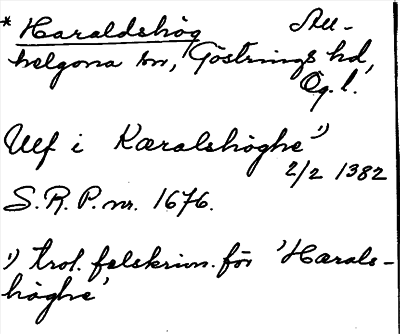 * Haraldshög All-
helgona sn, Göstrings hd,
Ög. l.
Ulf i Kæralshöghe¹)
2/2 1382
S.R.P. nr. 1676.
¹) trol. felskrivn. för 'Hærals-
höghe'